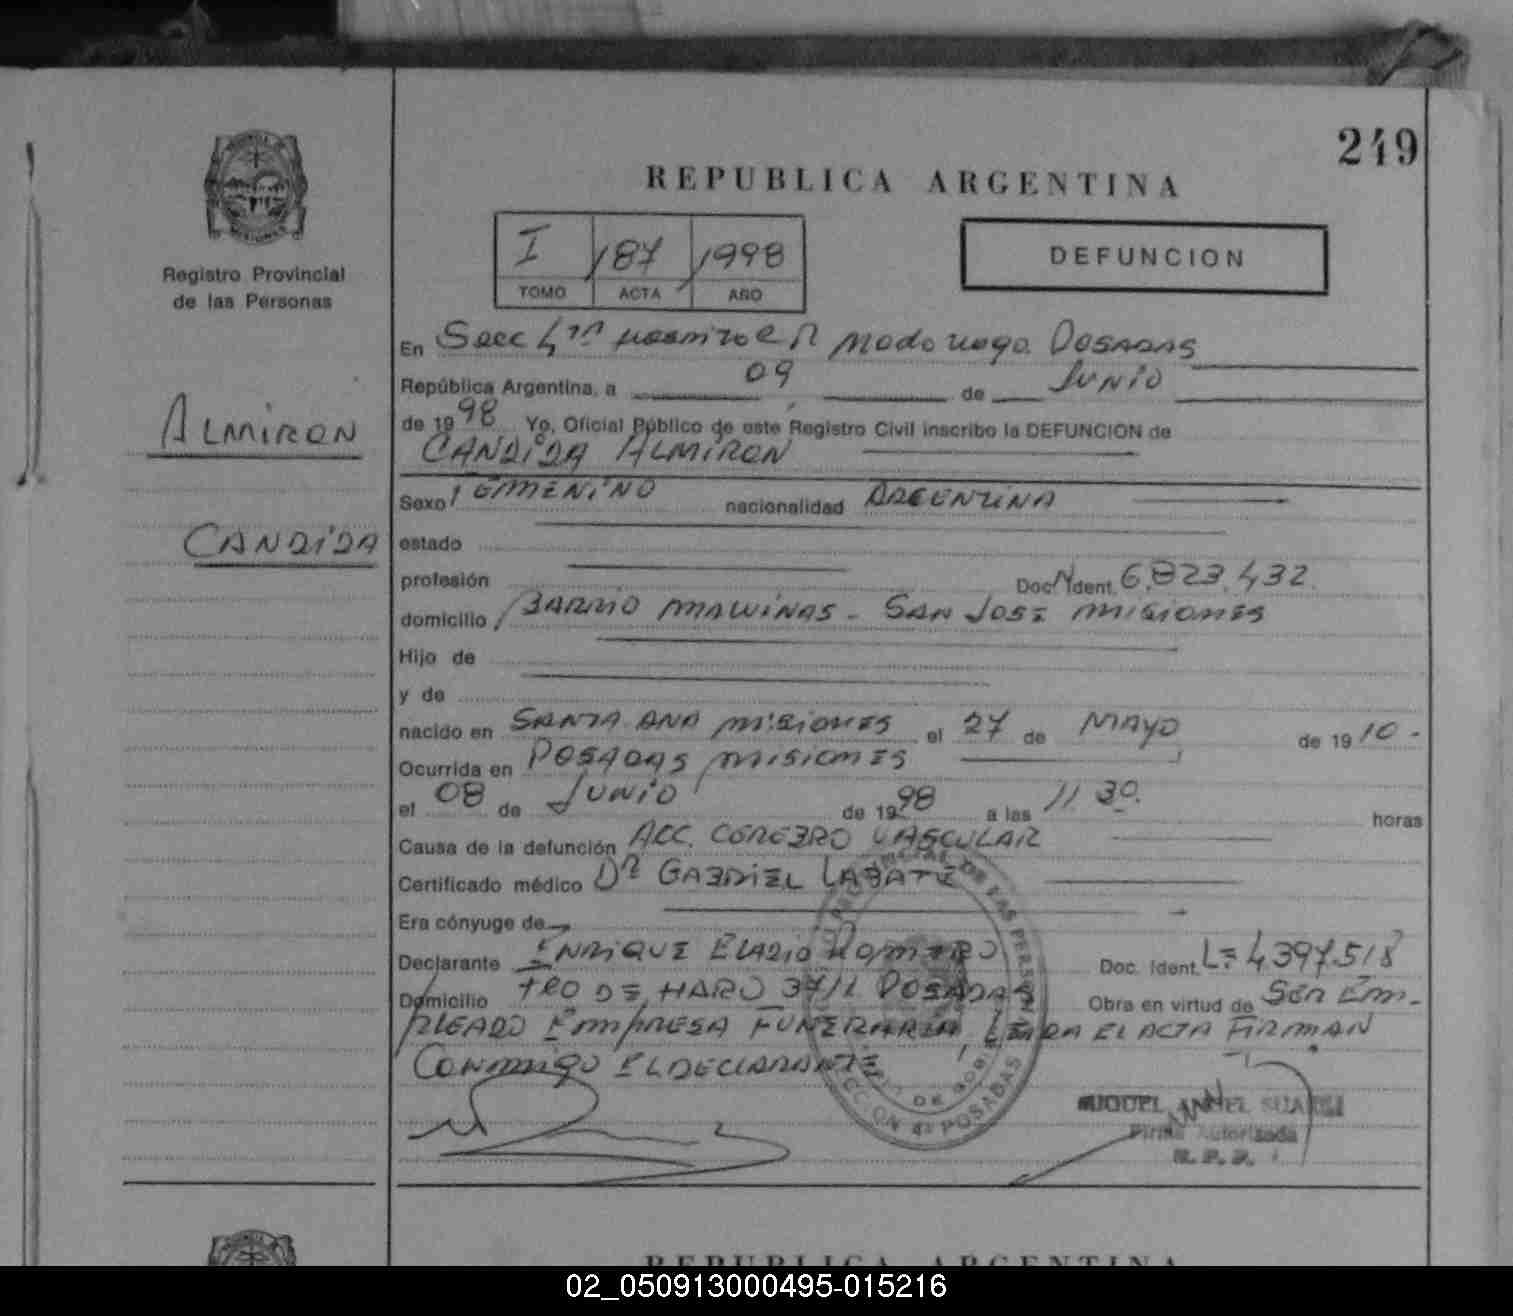 249
REPUBLICA ARGENTINA
I 187 1998
TOMO ACTA AÑO
DEFUNCION
Registro Provincial
de las Personas
ALMIRON
CANDIDA
En Secc 4ta Hospital R Madariaga Posadas
República Argentina, a 09 de Junio
de 1998 Yo, Oficial Público de este Registro Civil inscribo la DEFUNCION de
CANDIDA ALMIRON
Sexo FEMENINO nacionalidad ARGENTINA
estado
profesión Doc. Ident. 6.823.432
domicilio BARRIO MALVINAS - SAN JOSE MISIONES
Hijo de
y de
nacido en SANTA ANA MISIONES el 27 de MAYO de 1910.-
Ocurrida en POSADAS MISIONES
el 08 de JUNIO de 1998 a las 11 30 horas
Causa de la defunción ACC. CEREBRO VASCULAR
Certificado médico Dr GABRIEL LABATE
Era cónyuge de
Declarante ENRIQUE ELADIO ROMERO Doc. Ident. LE 4397.518
Domicilio TRO DE HARO POSADAS Obra en virtud de SER EM-
PLEADO EMPRESA FUNERARIA, LEIDA EL ACTA FIRMAN
CONMIGO EL DECLARANTE
SECCION 4ª POSADAS
MIGUEL ANGEL SUAREZ
Firma Autorizada
R. P. P.
REPUBLICA ARGENTINA
02_050913000495-015216